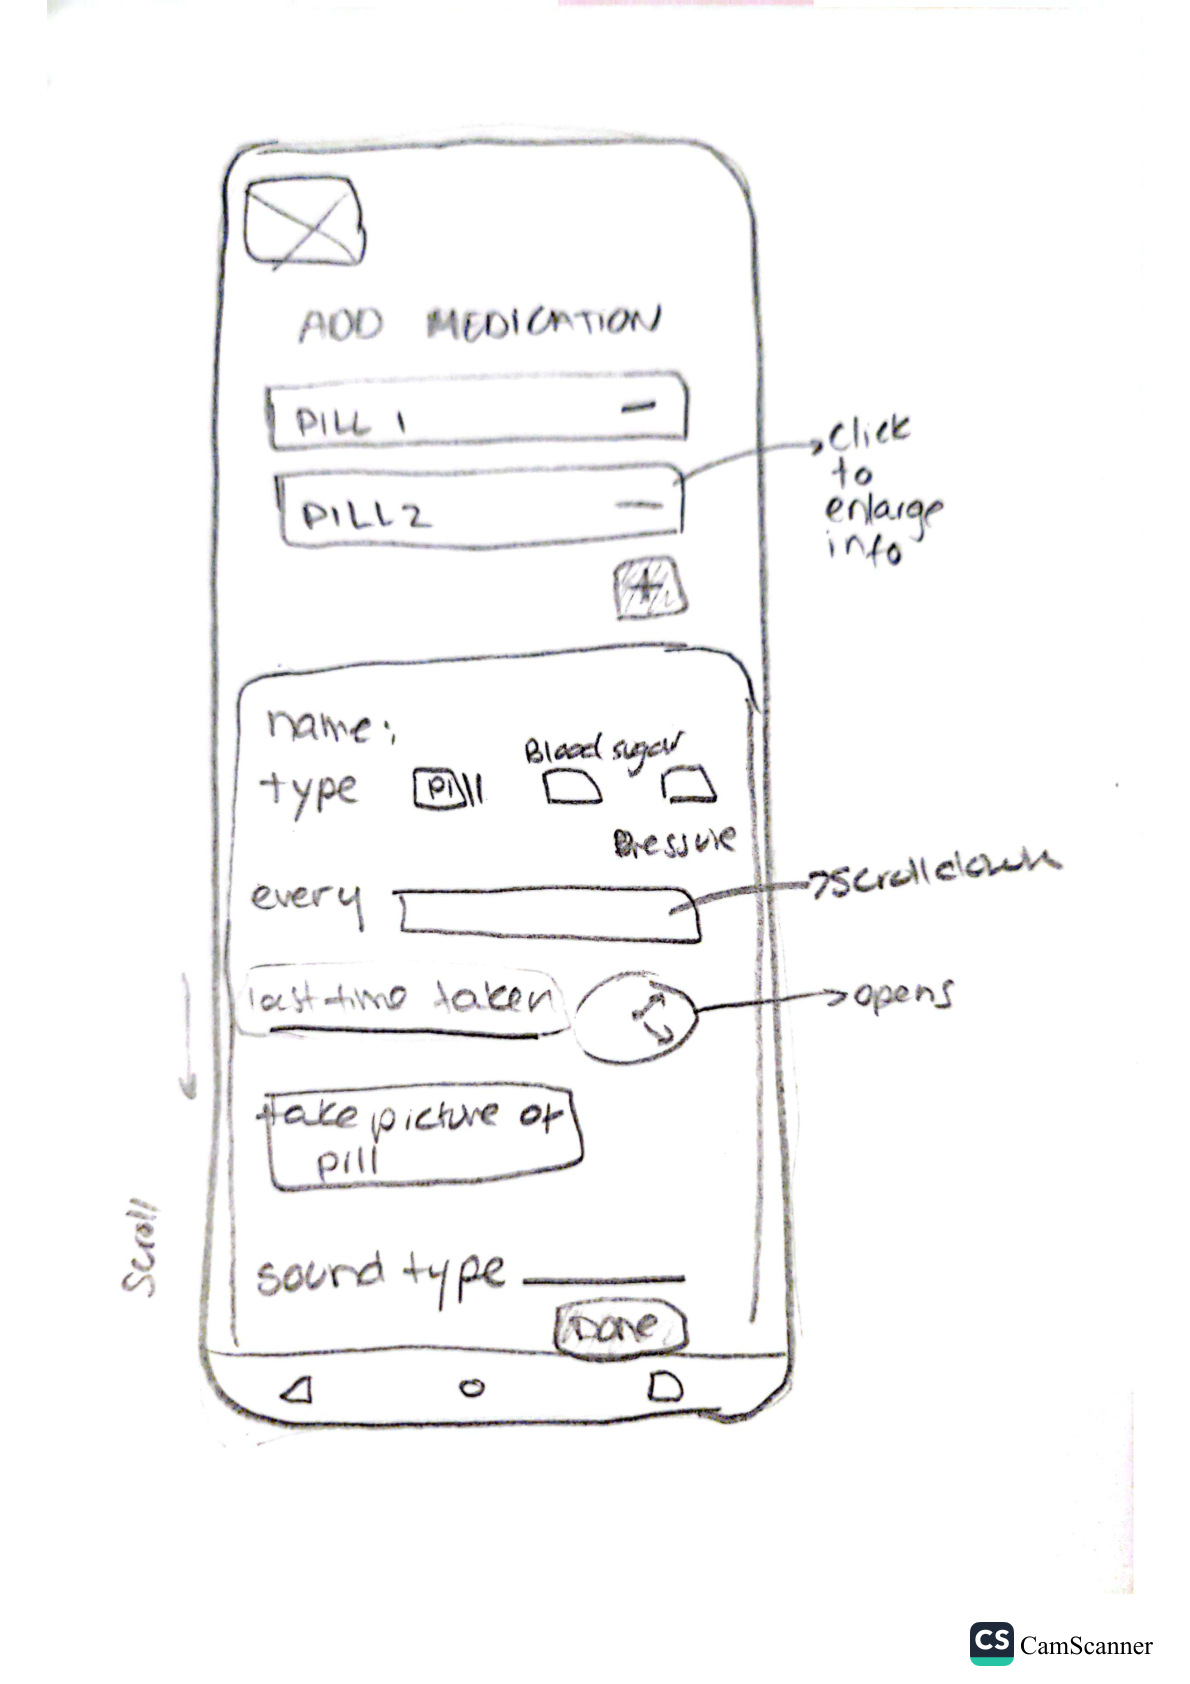 ADD MEDICATION
PILL 1
PILL 2
click
to
enlarge
info
+
name:
Blood sugar
type
Pill
Pressure
every
scroll down
last time taken
opens
take picture of
pill
Scroll
sound type
Done
CS CamScanner